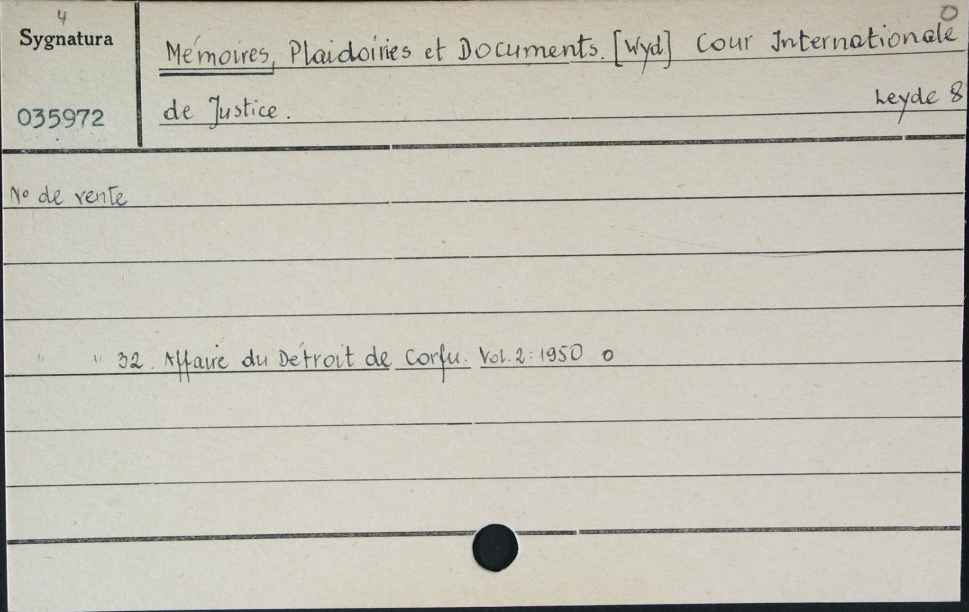 4
Sygnatura
035972
O
Mémoires, Plaidoiries et Documents. [Wyd] Cour Internationale
de Justice.
Leyde 8
No de vente
" " 32. Affaire du Détroit de Corfu. Vol. 2: 1950 o